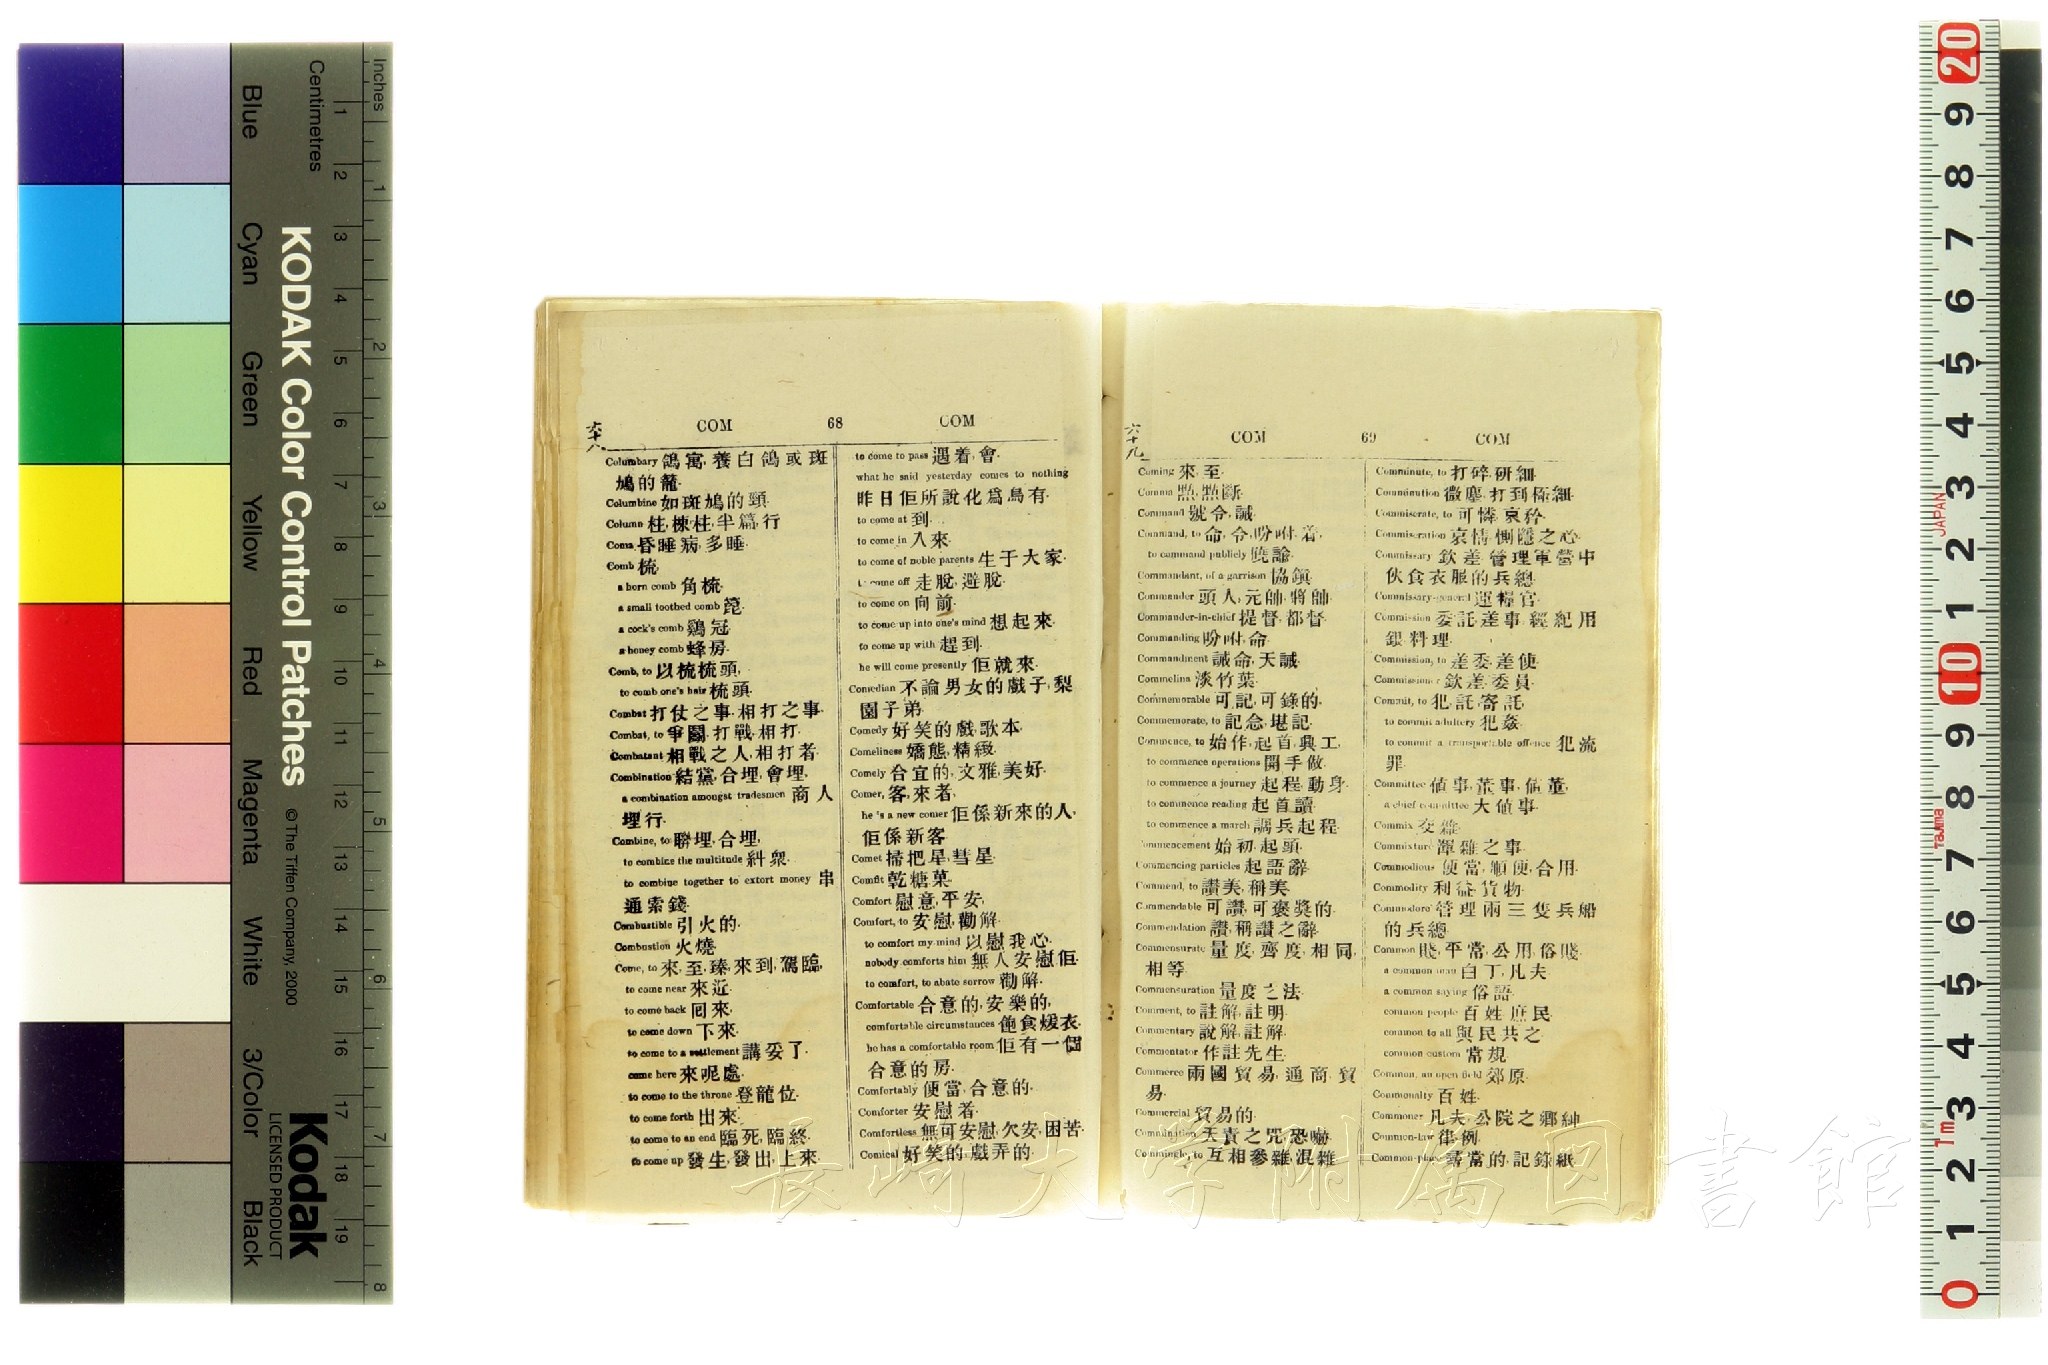 Inches
Centimetres
1 2 3 4 5 6 7 8
1 2 3 4 5 6 7 8 9 10 11 12 13 14 15 16 17 18 19
KODAK Color Control Patches
© The Tiffen Company, 2000
Kodak
LICENSED PRODUCT
Blue
Cyan
Green
Yellow
Red
Magenta
White
3/Color
Black
六十八
COM 68 COM
Columbary 鴿寓,養白鴿或斑
鳩的籠.
Columbine 如斑鳩的頸.
Column 柱,棟柱,半篇,行
Coma 昏睡病,多睡.
Comb 梳,
a horn comb 角梳.
a small toothed comb 篦.
a cock's comb 鷄冠
a honey comb 蜂房.
Comb, to 以梳梳頭,
to comb one's hair 梳頭.
Combat 打仗之事,相打之事.
Combat, to 爭鬭,打戰,相打.
Combatant 相戰之人,相打者.
Combination 結黨,合埋,會埋,
a combination amongst tradesmen 商人
埋行.
Combine, to 聯埋,合埋,
to combine the multitude 糾衆.
to combine together to extort money 串
通索錢.
Combustible 引火的.
Combustion 火燒.
Come, to 來,至,臻,來到,駕臨,
to come near 來近.
to come back 囘來.
to come down 下來.
to come to a settlement 講妥了.
come here 來呢處.
to come to the throne 登龍位.
to come forth 出來.
to come to an end 臨死,臨終.
to come up 發生,發出,上來.
to come to pass 遇着,會.
what he said yesterday comes to nothing
昨日佢所說化爲烏有.
to come at 到.
to come in 入來.
to come of noble parents 生于大家.
to come off 走脫,避脫.
to come on 向前.
to come up into one's mind 想起來.
to come up with 趕到.
he will come presently 佢就來.
Comedian 不論男女的戲子,梨
園子弟.
Comedy 好笑的戲,歌本.
Comeliness 嬌態,精緻.
Comely 合宜的,文雅,美好.
Comer, 客,來者,
he's a new comer 佢係新來的人,
佢係新客
Comet 掃把星,彗星.
Comfit 乾糖菓.
Comfort 慰意,平安,
Comfort, to 安慰,勸解.
to comfort my mind 以慰我心.
nobody comforts him 無人安慰佢.
to comfort, to abate sorrow 勸解.
Comfortable 合意的,安樂的,
comfortable circumstances 飽食煖衣.
he has a comfortable room 佢有一個
合意的房.
Comfortably 便當,合意的.
Comforter 安慰者.
Comfortless 無可安慰,欠安,困苦.
Comical 好笑的,戲弄的.
六十九
COM 69 COM
Coming 來,至.
Comma 㸃,㸃斷.
Command 號令,誡.
Command, to 命,令,吩咐着.
to command publicly 曉諭.
Commandant, of a garrison 協鎭.
Commander 頭人,元帥,將帥.
Commander-in-chief 提督,都督.
Commanding 吩咐,命.
Commandment 誡命,天誡.
Commelina 淡竹葉.
Commemorable 可記,可錄的.
Commemorate, to 記念,堪記.
Commence, to 始作,起首,興工,
to commence operations 開手做.
to commence a journey 起程,動身.
to commence reading 起首讀.
to commence a march 調兵起程.
Commencement 始初,起頭.
Commencing particles 起語辭.
Commend, to 讚美,稱美.
Commendable 可讚,可褒獎的.
Commendation 讚,稱讚之辭.
Commensurate 量度,齊度,相同,
相等.
Commensuration 量度之法.
Comment, to 註解,註明.
Commentary 說解,註解.
Commentator 作註先生.
Commerce 兩國貿易,通商,貿
易.
Commercial 貿易的.
Commination 天責之咒,恐嚇.
Commingle, to 互相參雜,混雜.
Comminute, to 打碎,研細.
Comminution 微塵,打到極細.
Commiserate, to 可憐,哀矜.
Commiseration 哀情,惻隱之心.
Commissary 欽差,管理軍營中
伙食衣服的兵總.
Commissary-general 運糧官.
Commission 委託,差事,經紀用
銀,料理.
Commission, to 差委,差使.
Commissioner 欽差,委員.
Commit, to 犯,託,寄託,
to commit adultery 犯姦.
to commit a transportable offence 犯流
罪.
Committee 値事,董事,値董,
a chief committee 大値事.
Commix 交雜.
Commixture 渾雜之事.
Commodious 便當,順便,合用.
Commodity 利益,貨物.
Commodore 管理兩三隻兵船
的兵總.
Common 賤,平常,公用,俗賤.
a common man 白丁,凡夫.
a common saying 俗語.
common people 百姓,庶民.
common to all 與民共之.
common custom 常規.
Common, an open field 郊原.
Commonalty 百姓.
Commoner 凡夫,公院之鄉紳.
Common-law 律例.
Common-place 尋常的,記錄紙.
長崎大学附属図書館
20 9 8 7 6 5 4 3 2 1 10 9 8 7 6 5 4 3 2 1 0
JAPAN
Tajima
1m